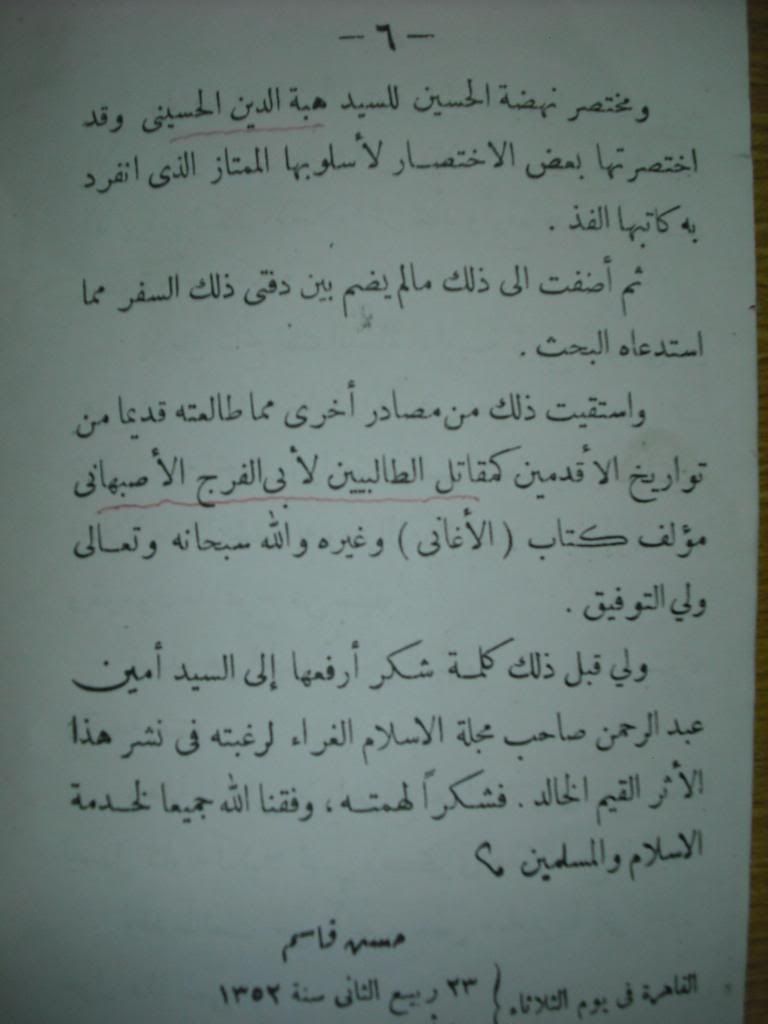 — ٦ —
ومختصر نهضة الحسين للسيد هبة الدين الحسينى وقد
اختصرتها بعض الاختصار لأسلوبها الممتاز الذى انفرد
به كاتبها الفذ .
ثم أضفت الى ذلك مالم يضم بين دفتى ذلك السفر مما
استدعاه البحث .
واستقيت ذلك من مصادر أخرى مما طالعته قديما من
تواريخ الأقدمين كمقاتل الطالبيين لأبى الفرج الأصبهانى
مؤلف كتاب ( الأغانى ) وغيره والله سبحانه وتعالى
ولي التوفيق .
ولي قبل ذلك كلمة شكر أرفعها إلى السيد أمين
عبد الرحمن صاحب مجلة الاسلام الغراء لرغبته فى نشر هذا
الأثر القيم الخالد . فشكراً لهمته ، وفقنا الله جميعا لخدمة
الاسلام والمسلمين
حسن قاسم
القاهرة فى يوم الثلاثاء { ٢٣ ربيع الثانى سنة ١٣٥٢